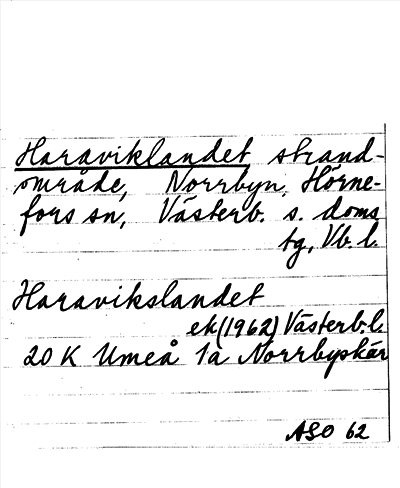 Haraviklandet strand-
område, Norrbyn, Hörne-
fors sn, Västerb. s. doms
tg, Vb. l.
Haravikslandet
ek (1962) Västerb. l.
20 K Umeå 1a Norrbyskär
ASO 62